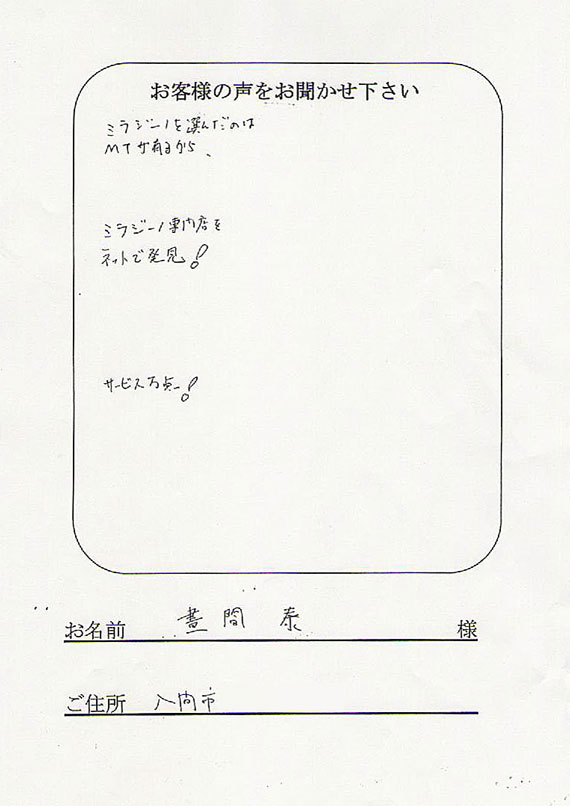 お客様の声をお聞かせ下さい
ミラジーノを選んだのは
MTが有るから、
ミラジーノ専門店を
ネットで発見!
サービス万点!
お名前 晝間 泰 様
ご住所 入間市